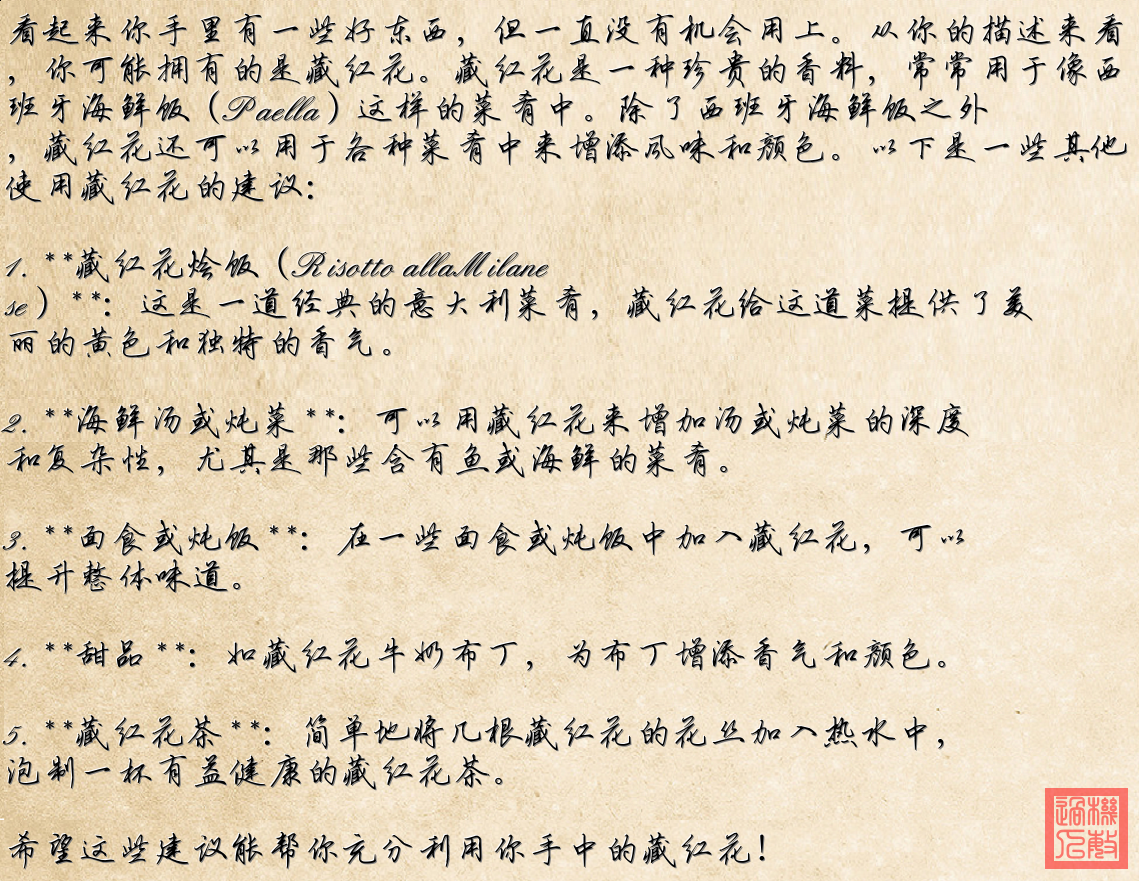 看起来你手里有一些好东西，但一直没有机会用上。从你的描述来看
，你可能拥有的是藏红花。藏红花是一种珍贵的香料，常常用于像西
班牙海鲜饭（Paella）这样的菜肴中。除了西班牙海鲜饭之外
，藏红花还可以用于各种菜肴中来增添风味和颜色。以下是一些其他
使用藏红花的建议：
1. **藏红花烩饭（Risotto allaMilane
se）**：这是一道经典的意大利菜肴，藏红花给这道菜提供了美
丽的黄色和独特的香气。
2. **海鲜汤或炖菜**：可以用藏红花来增加汤或炖菜的深度
和复杂性，尤其是那些含有鱼或海鲜的菜肴。
3. **面食或炖饭**：在一些面食或炖饭中加入藏红花，可以
提升整体味道。
4. **甜品**：如藏红花牛奶布丁，为布丁增添香气和颜色。
5. **藏红花茶**：简单地将几根藏红花的花丝加入热水中，
泡制一杯有益健康的藏红花茶。
希望这些建议能帮你充分利用你手中的藏红花！